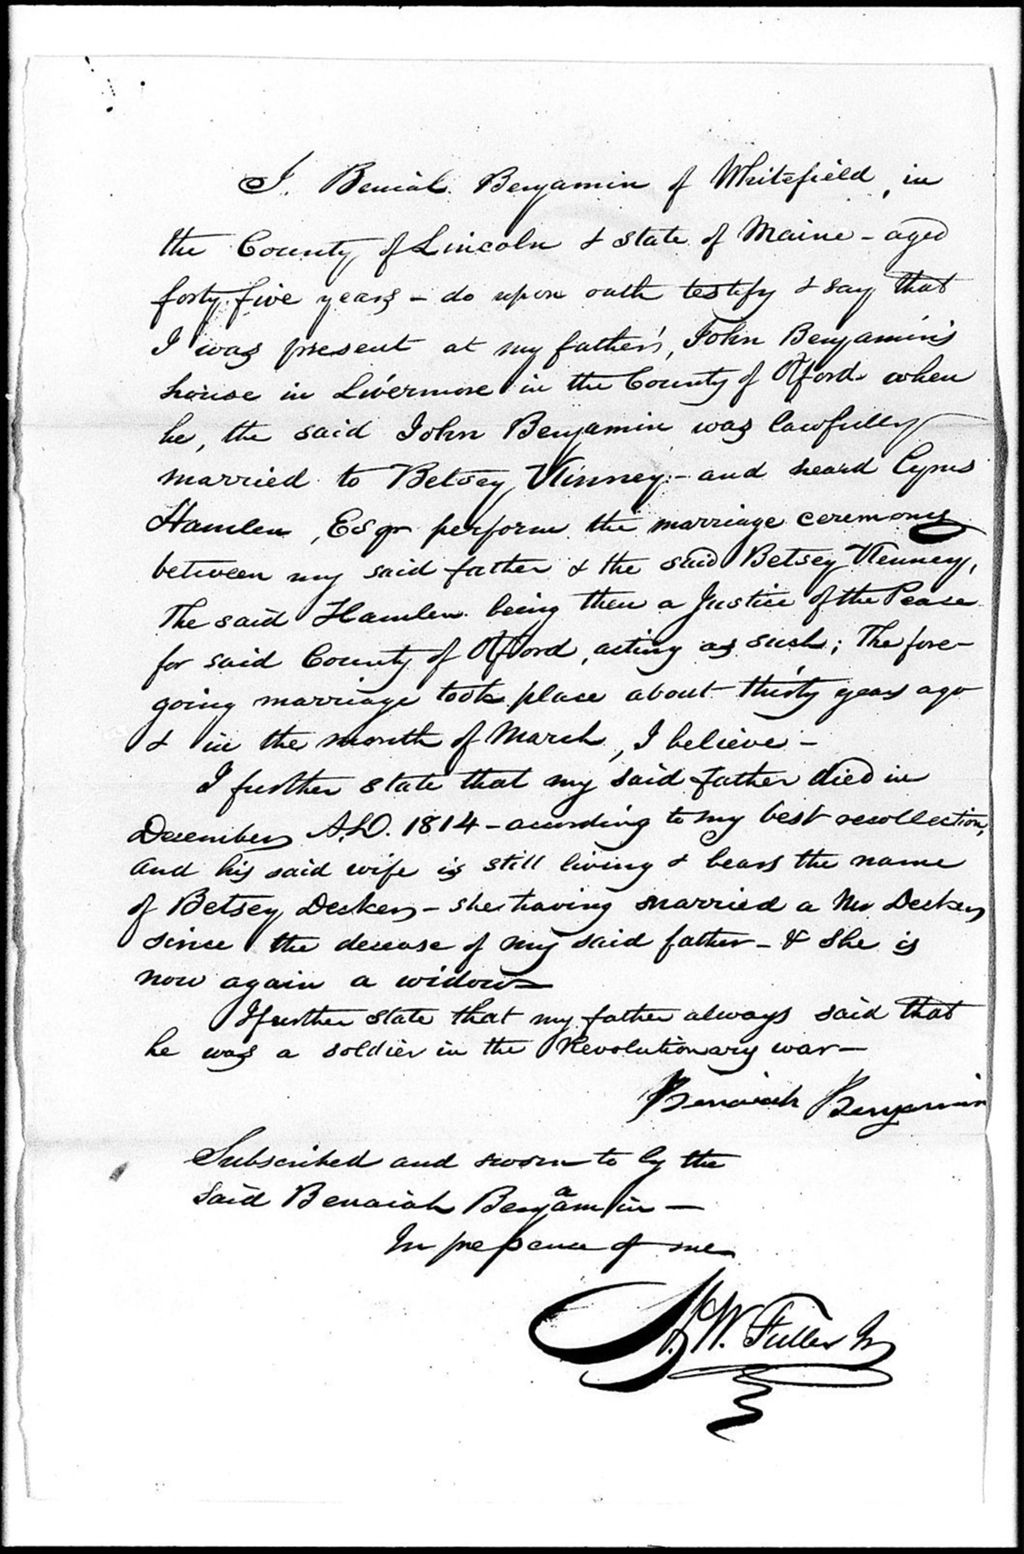 I. Beniah Benjamin of Whitefield, in
the County of Lincoln & state of Maine - aged
forty five years - do upon oath testify & say that
I was present at my father's, John Benjamin's
house in Livermore in the County of Oxford when
he, the said John Benjamin was lawfully
married to Betsey Kinney - and heard Cyrus
Hamlen, Esqr perform the marriage ceremony
between my said father & the said Betsey Kenney,
The said Hamlen being then a Justice of the Peace
for said County of Oxford, acting as such; The fore-
going marriage took place about thirty years ago
& in the month of March, I believe -
I further state that my said father died in
December A.D. 1814 - according to my best recollection,
and his said wife is still living & bears the name
of Betsey Decker - she having married a Mr Decker
since the decease of my said father - & she is
now again a widow -
I further state that my father always said that
he was a soldier in the Revolutionary war -
Benaiah Benjamin
Subscribed and sworn to by the
said Benaiah Benjamin -
In presence of me
W. Fuller